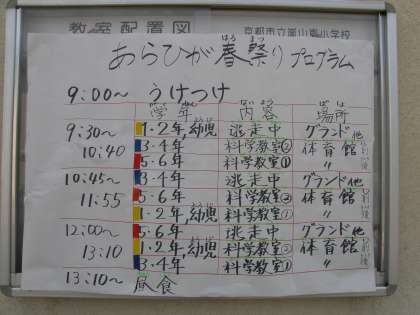 教室配置図
京都市立嵐山東小学校
あらひが春祭りプログラム
はる まつ
9:00〜 うけつけ
学年 内容 場所
がく ねん ない よう ば しょ
9:30〜 1・2年,幼児 逃走中 グランド他
10:40 3・4年 科学教室② 体育館
5・6年 科学教室① 〃
10:45〜 3・4年 逃走中 グランド他
11:55 5・6年 科学教室② 体育館
1・2年,幼児 科学教室① 〃
12:00〜 5・6年 逃走中 グランド他
13:10 1・2年,幼児 科学教室② 体育館
3・4年 科学教室① 〃
13:10〜 昼食